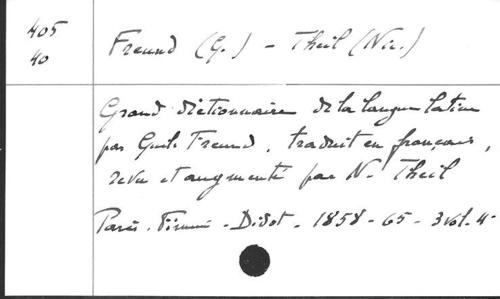 405
40
Freund (G.) - Theil (Nic.)
Grand dictionnaire de la langue latine
par Guil. Freund, traduit en français,
revu et augmenté par N. Theil
Paris. Firmin - Didot - 1858 - 65 - 3 vol. 4°